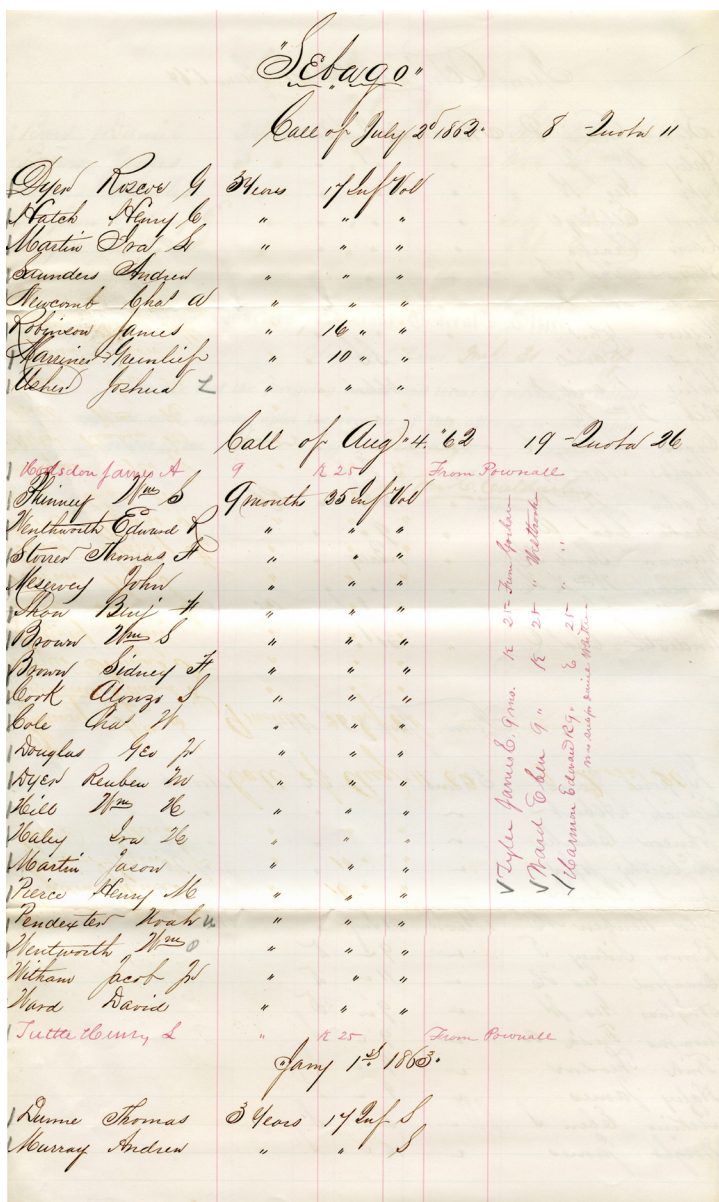 "Sebago"
Call of July 2d 1862. 8 - Quota 11
Dyer Roscoe G 3 Years 17 Inf Vol
Hatch Henry C " " "
Martin Ira L " " "
Saunders Andrew " " "
Newcomb Chas W " " "
Robinson James " 16 " "
Marriner Greenlief " 10 " "
Usher Joshua L " " "
Call of Aug 4. "62 19 - Quota 26
Hodsdon James A 9 K 25 From Pownall
Phinney Wm S 9 months 25 Inf Vol
Wenthworth Edward R " " "
Storer Thomas F " " "
Meservey John " " "
Shaw Benj F " " "
Brown Wm S " " "
Brown Sidney F " " "
Cook Alonzo S " " "
Cole Chas W " " "
Douglas Geo Jr " " "
Dyer Reuben M " " "
Hill Wm H " " "
Haley Ira H " " "
Martin Jason " " "
Pierce Henry M " " "
Pendexter Noah " " "
Wentworth Wm O " " "
Witham Jacob Jr " " "
Ward David " " "
Tuttle Henry L " K 25 From Pownall
Jany 1st 1863.
Dunne Thomas 3 Years 17 Inf S
Murray Andrew " " S
Tyler James E. 9 ms. K 25 - From Gorham
Ward Eben 9 " K 25 " Westbrook
Harmon Edward K 9 " E 25 " "